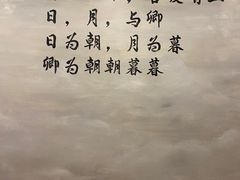 日，月，与卿
日为朝，月为暮
卿为朝朝暮暮